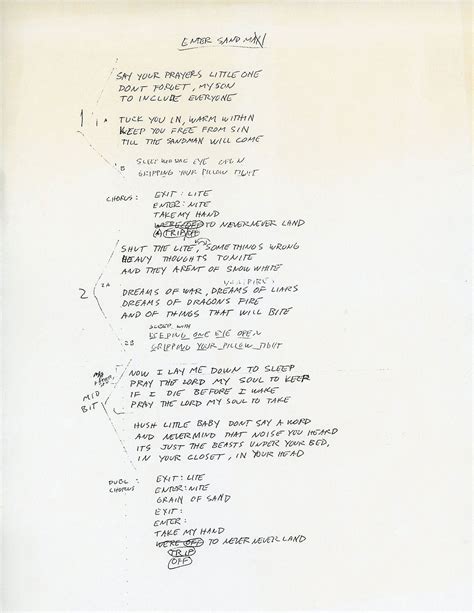 ENTER SANDMAN
SAY YOUR PRAYERS LITTLE ONE
DONT FORGET, MY SON
TO INCLUDE EVERYONE
1 1A TUCK YOU IN, WARM WITHIN
KEEP YOU FREE FROM SIN
TILL THE SANDMAN WILL COME
B SLEEP WITH ONE EYE OPEN
GRIPPING YOUR PILLOW TIGHT
CHORUS: EXIT: LITE
ENTER: NITE
TAKE MY HAND
WERE OFF TO NEVERNEVER LAND
A TRIP OFF
SHUT THE LITE, SOMETHINGS WRONG
HEAVY THOUGHTS TONITE
AND THEY ARENT OF SNOW WHITE
2 2A DREAMS OF WAR, DREAMS OF LIARS
DREAMS OF DRAGONS FIRE
AND OF THINGS THAT WILL BITE
SLEEP WITH
2B KEEPING ONE EYE OPEN
GRIPPING YOUR PILLOW TIGHT
NOW I LAY ME DOWN TO SLEEP
PRAY THE LORD MY SOUL TO KEEP
MID BIT IF I DIE BEFORE I WAKE
PRAY THE LORD MY SOUL TO TAKE
HUSH LITTLE BABY DONT SAY A WORD
AND NEVERMIND THAT NOISE YOU HEARD
ITS JUST THE BEASTS UNDER YOUR BED,
IN YOUR CLOSET, IN YOUR HEAD
DUBL CHORUS: EXIT: LITE
ENTER: NITE
GRAIN OF SAND
EXIT:
ENTER:
TAKE MY HAND
WERE OFF TO NEVER NEVER LAND
TRIP
OFF